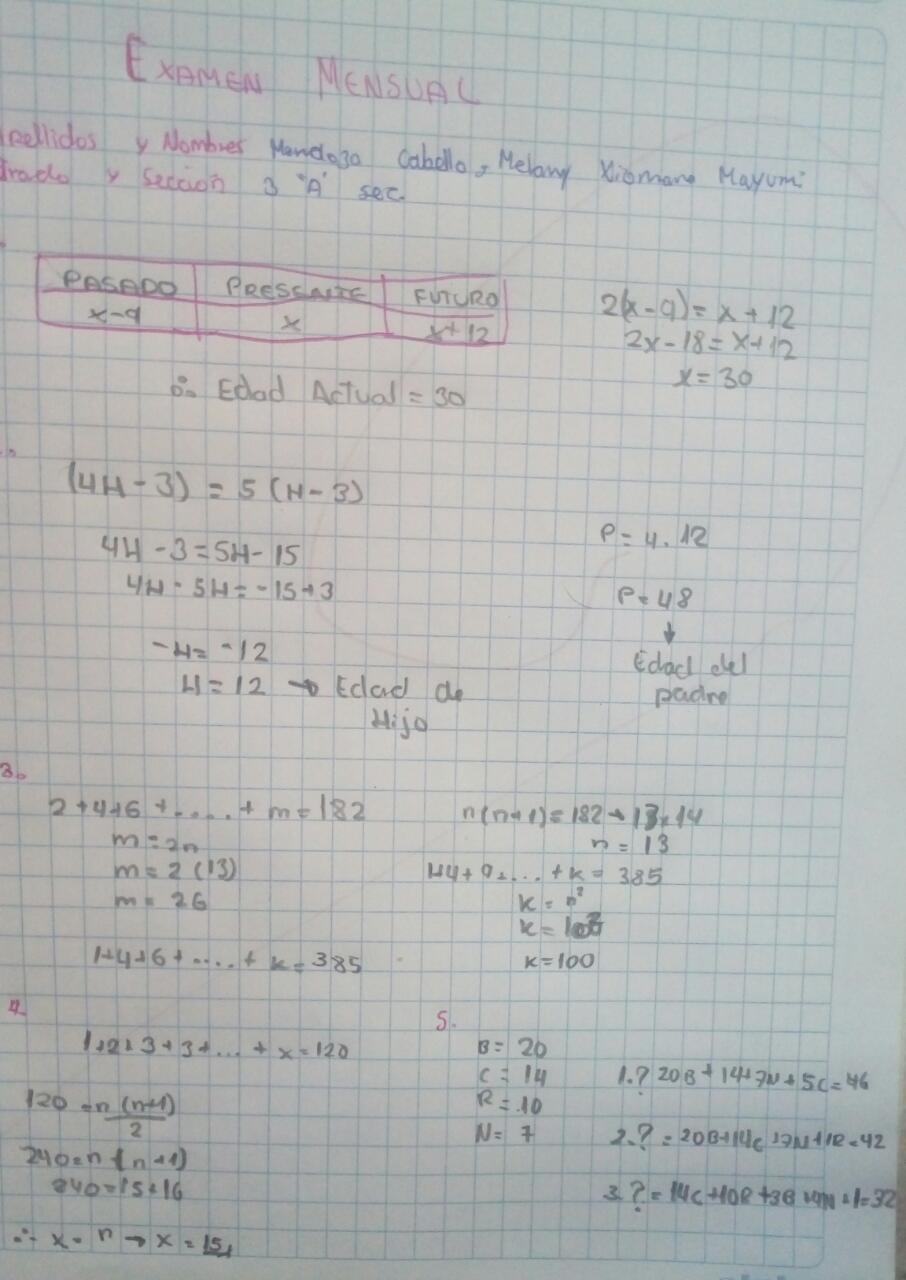 EXAMEN MENSUAL
pellidos y Nombres Mendoza Cabello, Melany Xiomara Mayumi
rado y Sección 3 "A" sec.
PASADO PRESENTE FUTURO
x-9 x x+12
2(x-9)=x+12
2x-18=x+12
x=30
∴ Edad Actual = 30
(4H-3) = 5 (H-3)
4H-3=5H-15
4H-5H=-15+3
-H=-12
H=12 → Edad de
Hijo
P=4.12
P=48
↓
Edad del
padre
3.
2+4+6+.....+m=182
m=2n
m=2(13)
m=26
1+4+6+.....+k=385
n(n+1)=182→13x14
n=13
1+4+9+...+k=385
k=n²
k=10²
k=100
4.
1+2+3+3+...+x=120
120=n(n+1)
2
240=n(n+1)
240=15+16
∴ x=n→x=15
5.
B=20
C=14
R=10
N=7
1.? 20B+14+7N+5C=46
2.?=20B+14C+7N+1R=42
3.?=14C+10R+3B+4N+1=32